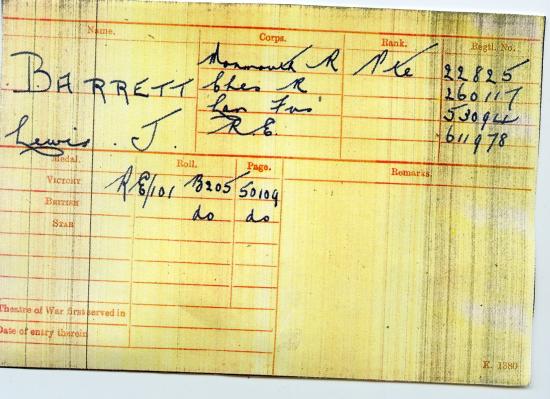 Name. Corps. Rank. Regtl. No.
BARRETT Monmouth R Pte 22825
Ches R 260117
Lan Fus 53094
Lewis. J. R.E. 611978
Medal. Roll. Page. Remarks.
VICTORY RE/101 B205 50109
BRITISH do do
STAR
Theatre of War first served in
Date of entry therein
K. 1380